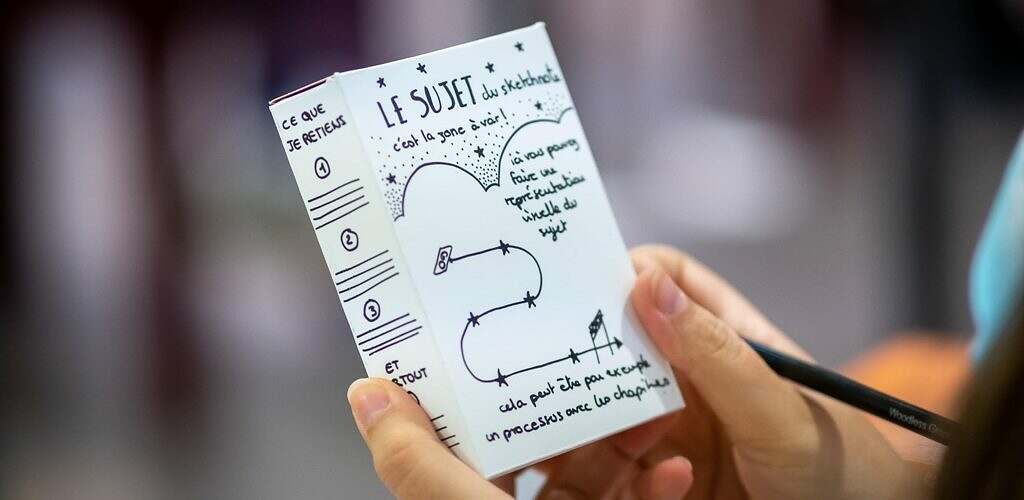 CE QUE
JE RETIENS
1
2
3
ET
LE SUJET du sketchnote
c'est la zone à voir!
ici vous pouvez
faire une
représentation
visuelle du
sujet
GO
cela peut être par exemple
un processus avec les chapitres
Woodless